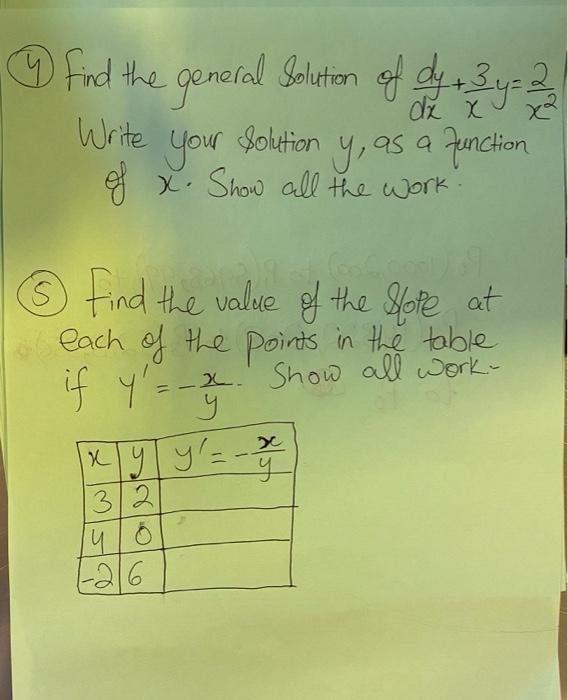 ④ Find the general Solution of dy/dx + 3/x y = 2/x²
Write your Solution y, as a function
of x. Show all the work.
⑤ Find the value of the Slope at
each of the points in the table
if y' = -x/y. Show all work.
x y y' = -x/y
3 2
4 0
-2 6